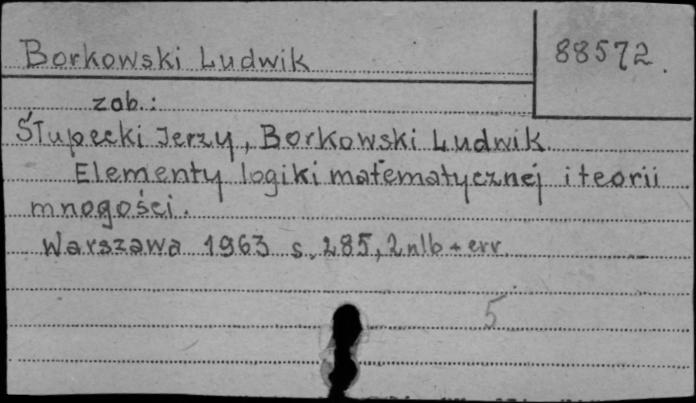 Borkowski Ludwik
88572.
zob.:
Słupecki Jerzy, Borkowski Ludwik.
Elementy logiki matematycznej i teorii
mnogości.
Warszawa 1963 s. 285, 2 nlb + err.
5